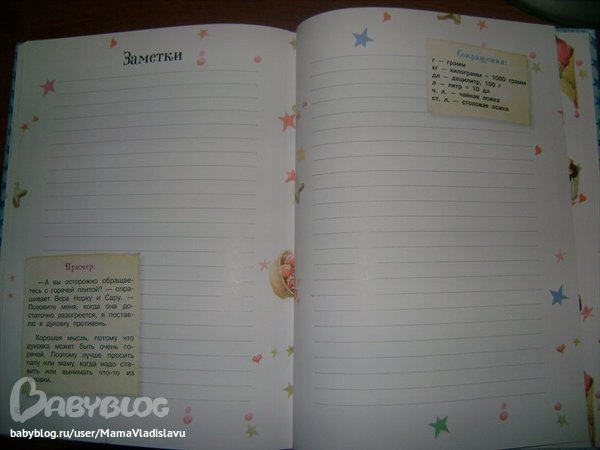 Заметки
Пример:
— А вы осторожно обращае-
тесь с горячей плитой? — спра-
шивает Вера Норку и Сару. —
Позовите меня, когда она до-
статочно разогреется, я постав-
лю в духовку противень.
Хорошая мысль, потому что
духовка может быть очень го-
рячей. Поэтому лучше просить
папу или маму, когда надо ста-
вить или вынимать что-то из
Сокращения:
г — грамм
кг — килограмм = 1000 грамм
дл — децилитр, 100 г
л — литр = 10 дл
ч. л. — чайная ложка
ст. л. — столовая ложка
BABYBLOG
babyblog.ru/user/MamaVladislavu